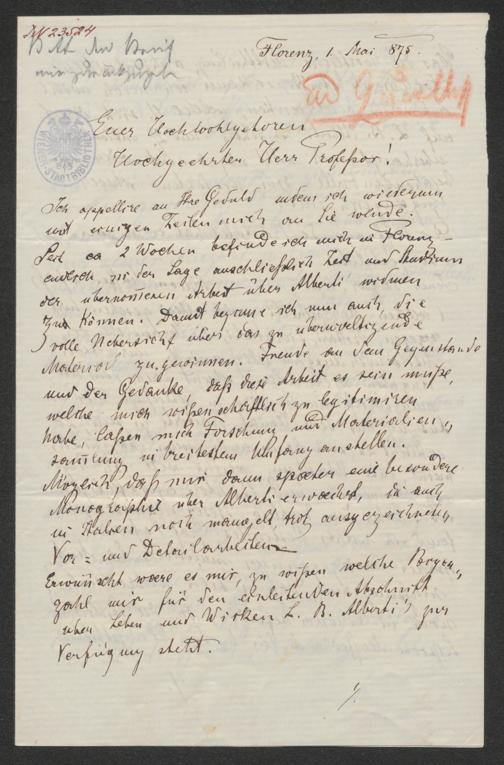 JN 23524
Bitte den Brief
mir zurück
Florenz, 1. Mai 875.
Euer Hochwohlgeboren
Hochgeehrter Herr Professor!
WIENER STADTBIBLIOTHEK
Ich appellire an Ihre Geduld indem ich wiederum
mit einigen Zeilen mich an Sie wende.
Seit ca 2 Wochen befinde ich mich in Florenz –
endlich in der Lage ausschließlich Zeit und Studium
der übernommenen Arbeit über Alberti widmen
zu können. Damit beginne ich nun auch die
volle Uebersicht über das zu überwältigende
Material zu gewinnen. Freude an dem Gegenstande
und der Gedanke, daß diese Arbeit es sein müße,
welche mich wißenschaftlich zu legitimiren
habe, laßen mich Forschung und Materialien„
sammlung in breitestem Umfang anstellen.
Möglich, daß mir dann spaeter eine besondere
Monographie über Alberti erwaechst, die auch
in Italien noch mangelt trotz ausgezeichneter
Vor= und Detailarbeiten
Erwünscht waere es mir, zu wißen welche Bogen„
zahl mir für den einleitenden Abschnitt
über Leben und Wirken L. B. Alberti's zur
Verfügung steht.